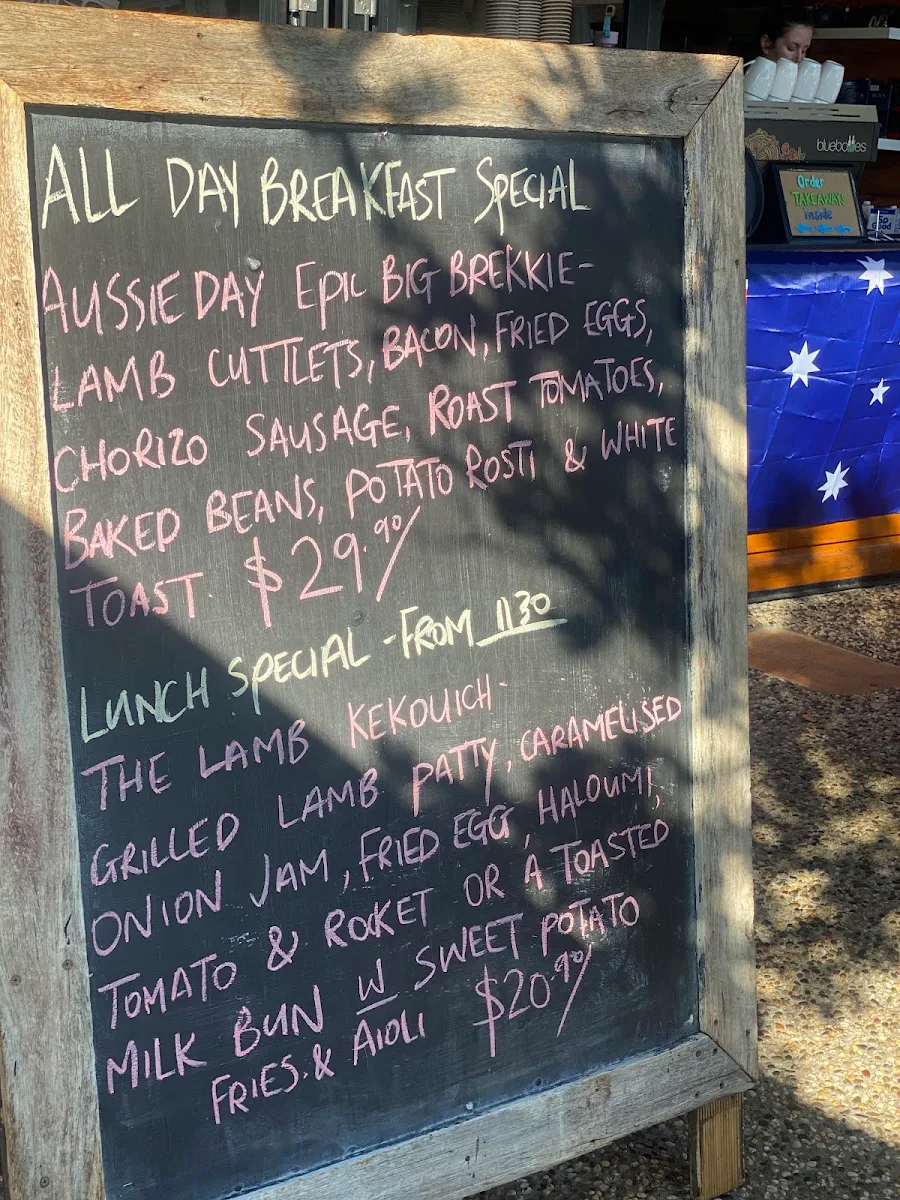 ALL DAY BREAKFAST SPECIAL
AUSSIE DAY EPIC BIG BREKKIE-
LAMB CUTTLETS, BACON, FRIED EGGS,
CHORIZO SAUSAGE, ROAST TOMATOES,
BAKED BEANS, POTATO ROSTI & WHITE
TOAST. $29.90/
LUNCH SPECIAL - FROM 1130
THE LAMB KEKOUICH-
GRILLED LAMB PATTY, CARAMELISED
ONION JAM, FRIED EGG, HALOUMI,
TOMATO & ROCKET OR A TOASTED
MILK BUN W SWEET POTATO
FRIES. & AIOLI $20.90/
bluebottles
Order
TAKEAWAYS
inside
So Good